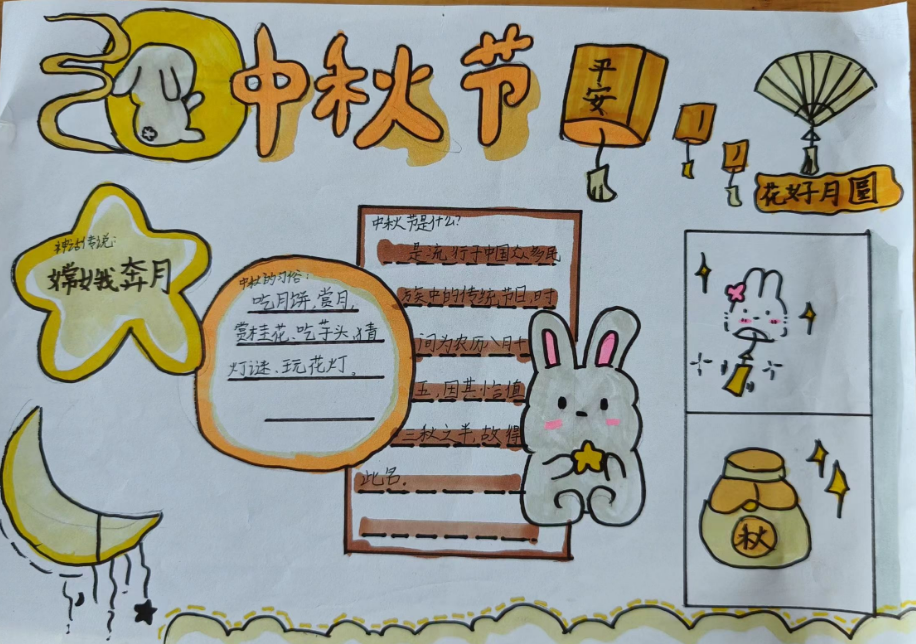 中秋节
平
安
花好月圆
神话传说:
嫦娥奔月
中秋的习俗:
吃月饼,赏月,
赏桂花、吃芋头,猜
灯谜、玩花灯。
中秋节是什么?
是流行于中国众多民
族中的传统节日,时
间为农历八月十
五,因其恰值
三秋之半,故得
此名.
秋